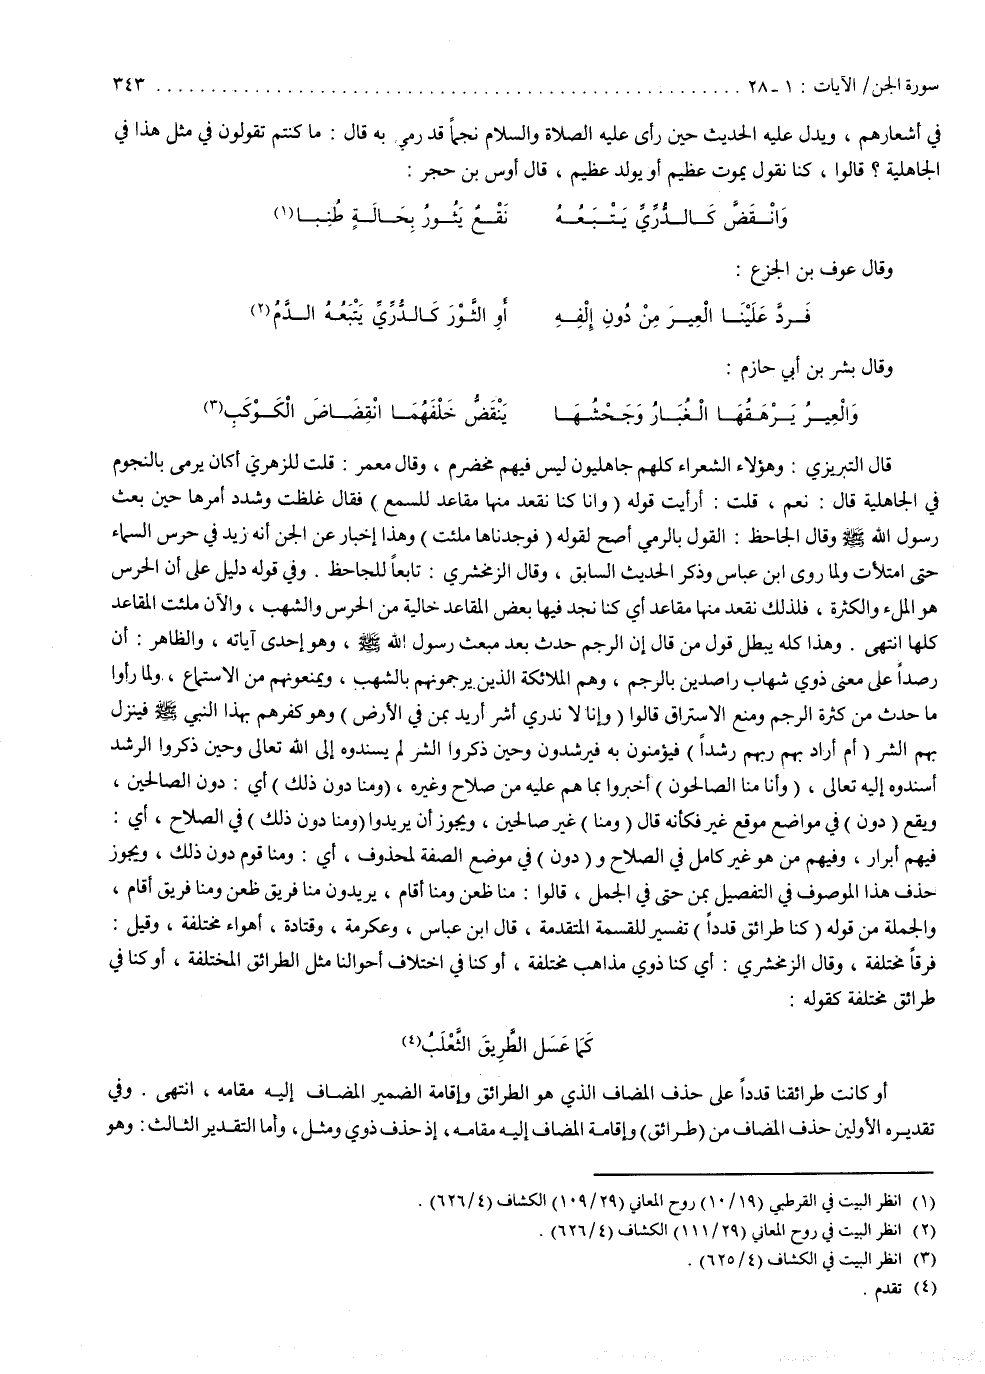 سورة الجن / الآيات : ١ ـ ٢٨ ................................................ ٣٤٣
في أشعارهم ، ويدل عليه الحديث حين رأى عليه الصلاة والسلام نجماً قد رمي به قال : ما كنتم تقولون في مثل هذا في
الجاهلية ؟ قالوا ، كنا نقول يموت عظيم أو يولد عظيم ، قال أوس بن حجر :
وَانْقَضَّ كَالدُّرِّيِّ يَتْبَعُهُ نَقْعٌ يَثُورُ بِحَالَةٍ طُنِبا(١)
وقال عوف بن الجزع :
فَردَّ عَلَيْنَا الْعِيرَ مِنْ دُونِ إِلْفِهِ أَوِ الثَّوْرَ كَالدُّرِّيِّ يَتْبَعُهُ الدَّمُ(٢)
وقال بشر بن أبي حازم :
وَالْعِيرُ يَرْهَقُهَا الْغُبَارُ وَجَحْشُهَا يَنْقَضُّ خَلْفَهُمَا انْقِضَاضَ الْكَوْكَبِ(٣)
قال التبريزي : وهؤلاء الشعراء كلهم جاهليون ليس فيهم مخضرم ، وقال معمر : قلت للزهريّ أكان يرمى بالنجوم
في الجاهلية قال : نعم ، قلت : أرأيت قوله ( وانا كنا نقعد منها مقاعد للسمع ) فقال غلظت وشدد أمرها حين بعث
رسول الله ﷺ وقال الجاحظ : القول بالرمي أصح لقوله ( فوجدناها ملئت ) وهذا إخبار عن الجن أنه زيد في حرس السماء
حتى امتلأت ولما روى ابن عباس وذكر الحديث السابق ، وقال الزمخشري : تابعاً للجاحظ . وفي قوله دليل على أن الحرس
هو الملء والكثرة ، فلذلك نقعد منها مقاعد أي كنا نجد فيها بعض المقاعد خالية من الحرس والشهب ، والآن ملئت المقاعد
كلها انتهى . وهذا كله يبطل قول من قال إن الرجم حدث بعد مبعث رسول الله ﷺ ، وهو إحدى آياته ، والظاهر : أن
رصداً على معنى ذوي شهاب راصدين بالرجم ، وهم الملائكة الذين يرجمونهم بالشهب ، ويمنعونهم من الاستماع ، ولما رأوا
ما حدث من كثرة الرجم ومنع الاستراق قالوا ( وإنا لا ندري أشر أريد بمن في الأرض ) وهو كفرهم بهذا النبي ﷺ فينزل
بهم الشر ( أم أراد بهم ربهم رشداً ) فيؤمنون به فيرشدون وحين ذكروا الشر لم يسندوه إلى الله تعالى وحين ذكروا الرشد
أسندوه إليه تعالى ، ( وأنا منا الصالحون ) أخبروا بما هم عليه من صلاح وغيره ، (ومنا دون ذلك ) أي : دون الصالحين ،
ويقع ( دون ) في مواضع موقع غير فكأنه قال ( ومنا ) غير صالحين ، ويجوز أن يريدوا (ومنا دون ذلك ) في الصلاح ، أي :
فيهم أبرار ، وفيهم من هو غير كامل في الصلاح و ( دون ) في موضع الصفة لمحذوف ، أي : ومنا قوم دون ذلك ، ويجوز
حذف هذا الموصوف في التفصيل بمن حتى في الجمل ، قالوا : منا ظعن ومنا أقام ، يريدون منا فريق ظعن ومنا فريق أقام ،
والجملة من قوله ( كنا طرائق قدداً ) تفسير للقسمة المتقدمة ، قال ابن عباس ، وعكرمة ، وقتادة ، أهواء مختلفة ، وقيل :
فرقاً مختلفة ، وقال الزمخشري : أي كنا ذوي مذاهب مختلفة ، أو كنا في اختلاف أحوالنا مثل الطرائق المختلفة ، أو كنا في
طرائق مختلفة كقوله :
كَمَا عَسَل الطَّرِيقَ الثَّعْلَبُ(٤)
أو كانت طرائقنا قدداً على حذف المضاف الذي هو الطرائق وإقامة الضمير المضاف إليه مقامه ، انتهى . وفي
تقديره الأولين حذف المضاف من (طرائق) وإقامة المضاف إليه مقامه، إذ حذف ذوي ومثل، وأما التقدير الثالث: وهو
(١) انظر البيت في القرطبي (١٩/١٠) روح المعاني (٢٩/١٠٩) الكشاف (٤/٦٢٦) .
(٢) انظر البيت في روح المعاني (٢٩/١١١) الكشاف (٤/٦٢٦) .
(٣) انظر البيت في الكشاف (٤/٦٢٥) .
(٤) تقدم .